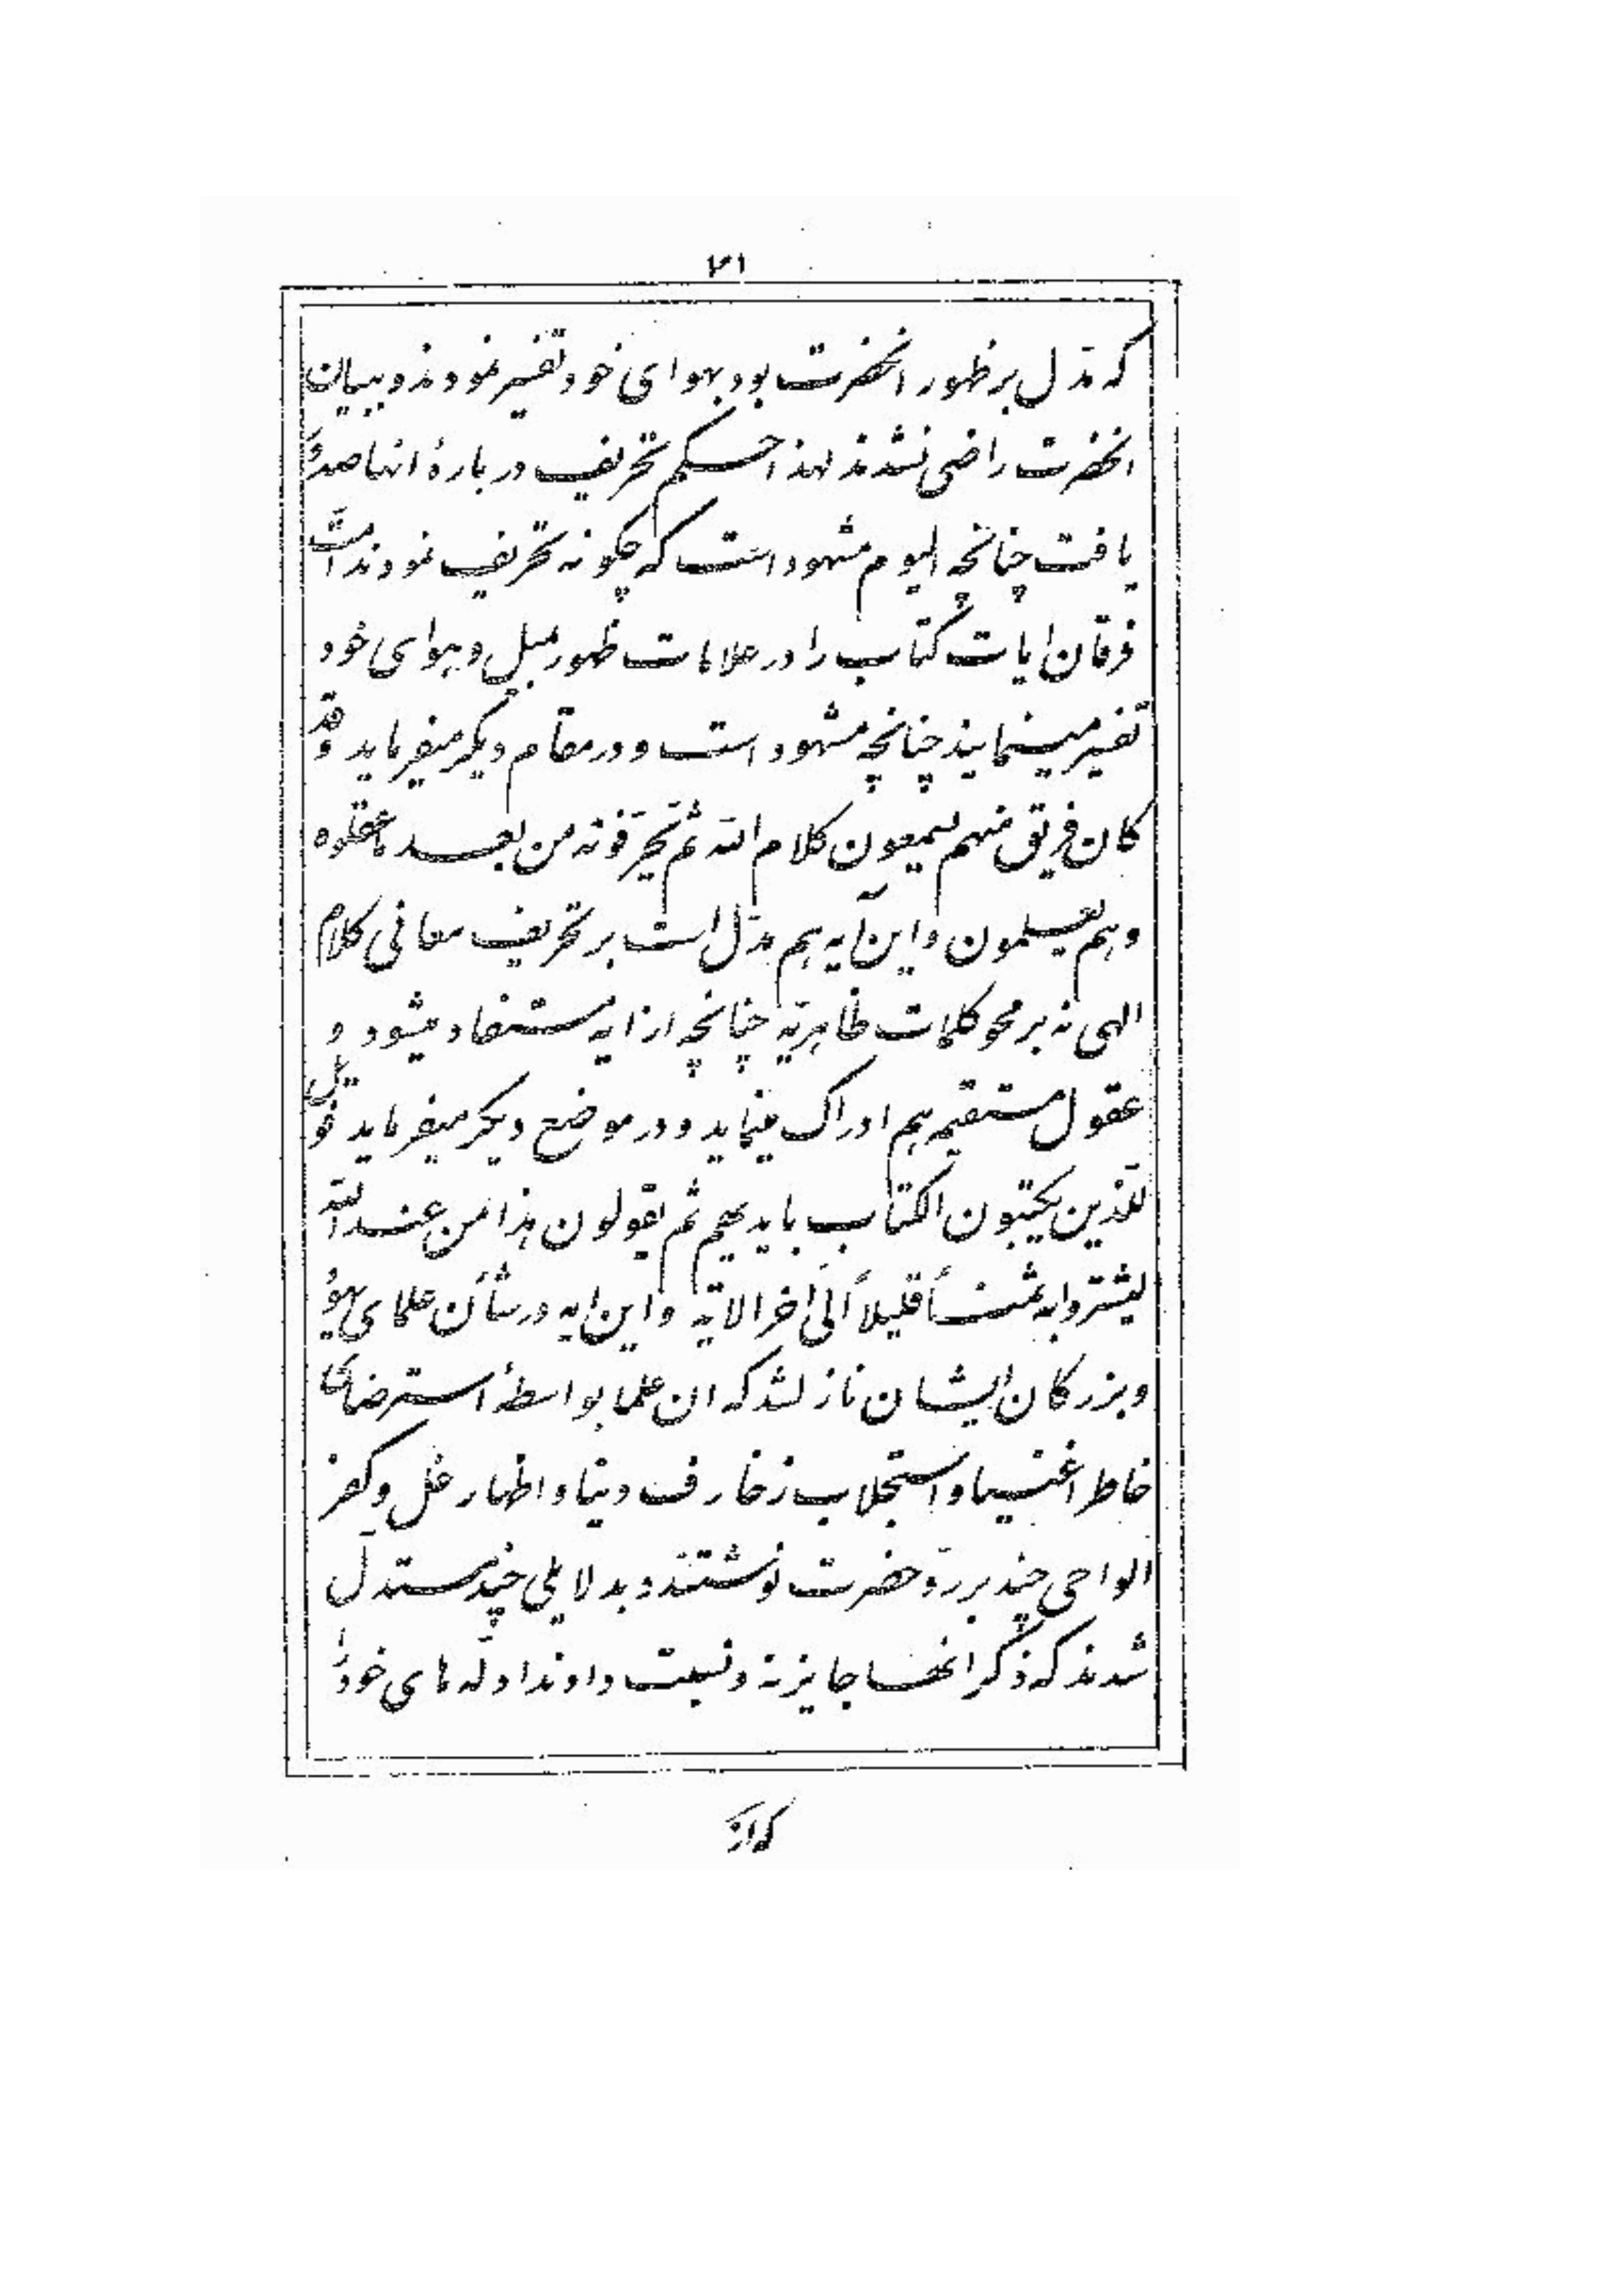 ۷۱
که مدّل بر ظهور انحضرت بود بهوای خود تفسیر نمودند و ببیان
انحضرت راضی نشدند لهذا حکم تحریف در بارهٔ انها صدور
یافت چنانچه الیوم مشهود است که چگونه تحریف نمودند امّت
فرقان ایات کتاب را در علامات ظهور بمیل و هوای خود
تفسیر مینمایند چنانچه مشهود است و در مقام دیگر میفرماید و قد
کان فریق منهم یسمعون کلام الله ثم یحرّفونه من بعد ما عقلوه
و هم یعلمون و این آیه هم مدّل است بر تحریف معانی کلام
الهی نه بر محو کلمات ظاهریّه چنانچه از ایه مستفاد میشود و
عقول مستقیمه هم ادراک مینماید و در موضع دیگر میفرماید فویل
للّذین یکتبون الکتاب بایدیهم ثم یقولون هذا من عند الله
لیشتروا به ثمناً قلیلاً الی اخر الایّه و این ایه در شأن علمای یهود
و بزرگان ایشان نازل شد که ان علما بواسطهٔ استرضای
خاطر اغنیا و استجلاب زخارف دنیا و اظهار غل و کفر
الواحی چند بر ردّ حضرت نوشتند و بدلایلی چند مستدلّ
شدند که ذکر انها جایز نه و نسبت دادند ادلّه های خود را
که از